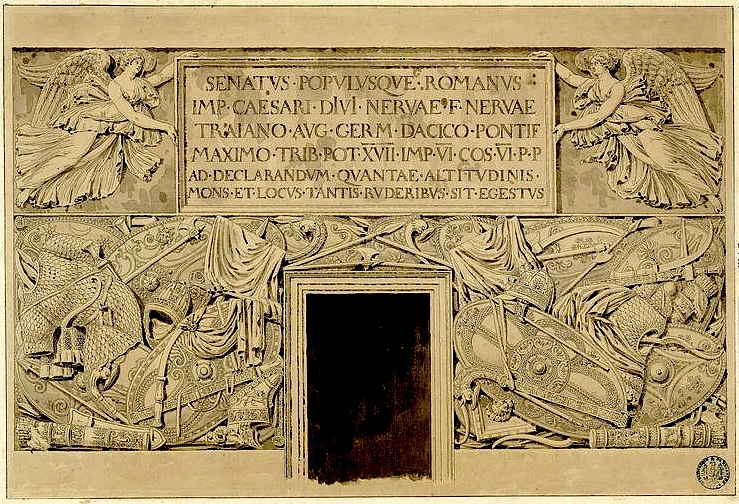 SENATVS · POPVLVSQVE · ROMANVS
IMP · CAESARI · DIVI · NERVAE · F · NERVAE
TRAIANO · AVG · GERM · DACICO · PONTIF
MAXIMO · TRIB · POT · X̅V̅I̅I̅ · IMP · V̅I̅ · COS · V̅I̅ · P · P
AD · DECLARANDVM · QVANTAE · ALTITVDINIS ·
MONS · ET · LOCVS · TANTIS · RVDERIBVS · SIT · EGESTVS